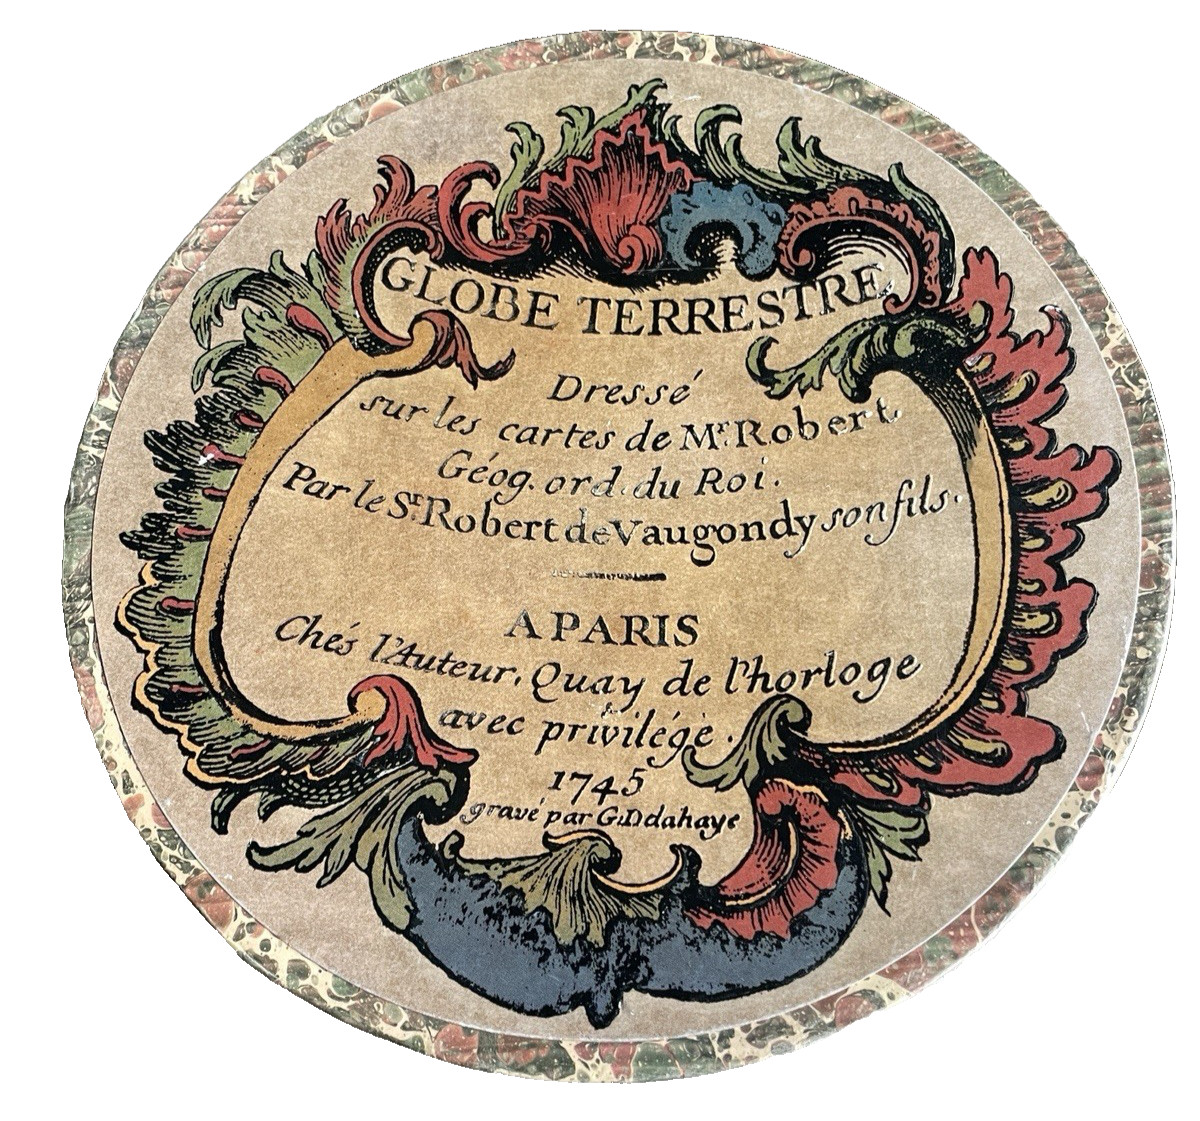 GLOBE TERRESTRE
Dressé
sur les cartes de Mr. Robert
Géog. ord. du Roi.
Par le Sr. Robert de Vaugondy son fils.
A PARIS
Chés l'Auteur, Quay de l'horloge
avec privilége.
1745
gravé par G.Ddahaye